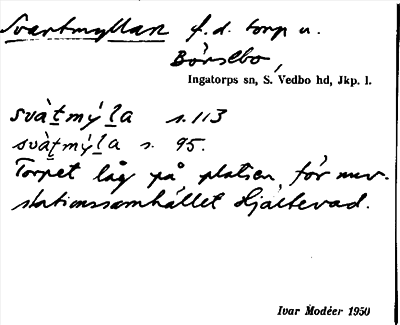 Svartmyllan f.d. torp u.
Börsebo,
Ingatorps sn, S. Vedbo hd, Jkp. l.
svàt̠mýl̠a s. 113
svàt̠mýl̠a s. 95.
Torpet låg på platsen för nuv.
stationssamhället Hjältevad.
Ivar Modéer 1950